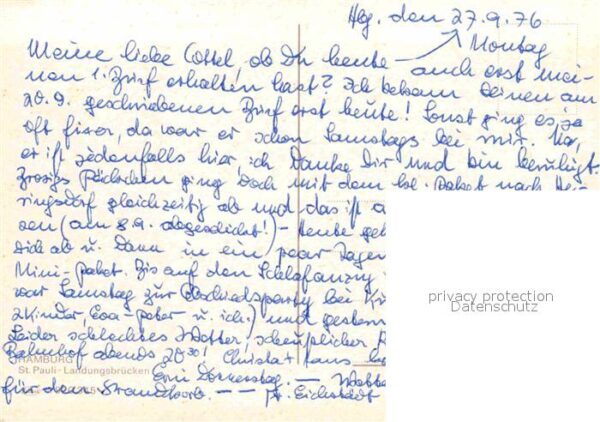 Hbg. den 27.9.76
Montag
Meine liebe Ottel, ob Du heute auch erst mei-
nen 1. Brief erhalten hast? Ich bekam Deinen am
20.9. geschriebenen Brief erst heute! Sonst ging es ja
oft fixer, da war er schon Samstags bei mir. Na,
er ist jedenfalls hier, ich danke Dir und bin beruhigt.
Päckchen ging doch mit dem Paket nach
gleichzeitig ab und das ist
(am 8.9. abgeschickt!) - heute
Dich ab u. dann in ein paar Tagen
Mini-paket. Bis auf den Schlafanzug
war Samstag zur Abschiedsparty bei
2 Kinder, Eva-peter u. ich.) und gestern
Leider schlechtes Wetter, scheusslicher
Bahnhof abends 20³⁰! Christa +
HAMBURG
St. Pauli - Landungsbrücken
Donnerstag. —
für den Strandkorb. — Eichstädt
privacy protection
Datenschutz